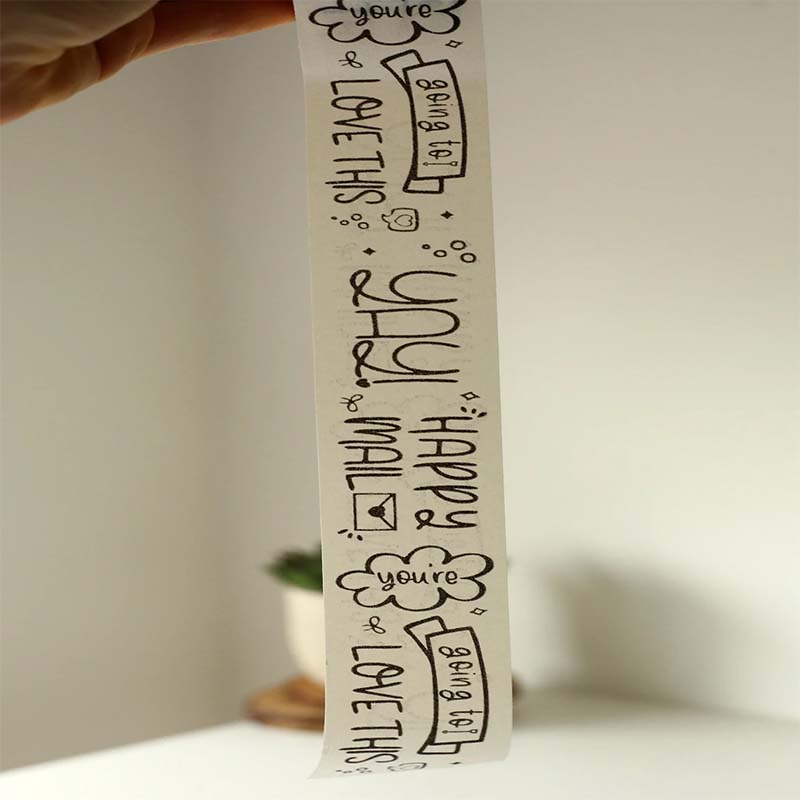 you're
going to!
LOVE THIS
YAY!
HAPPY
MAIL
you're
going to!
LOVE THIS